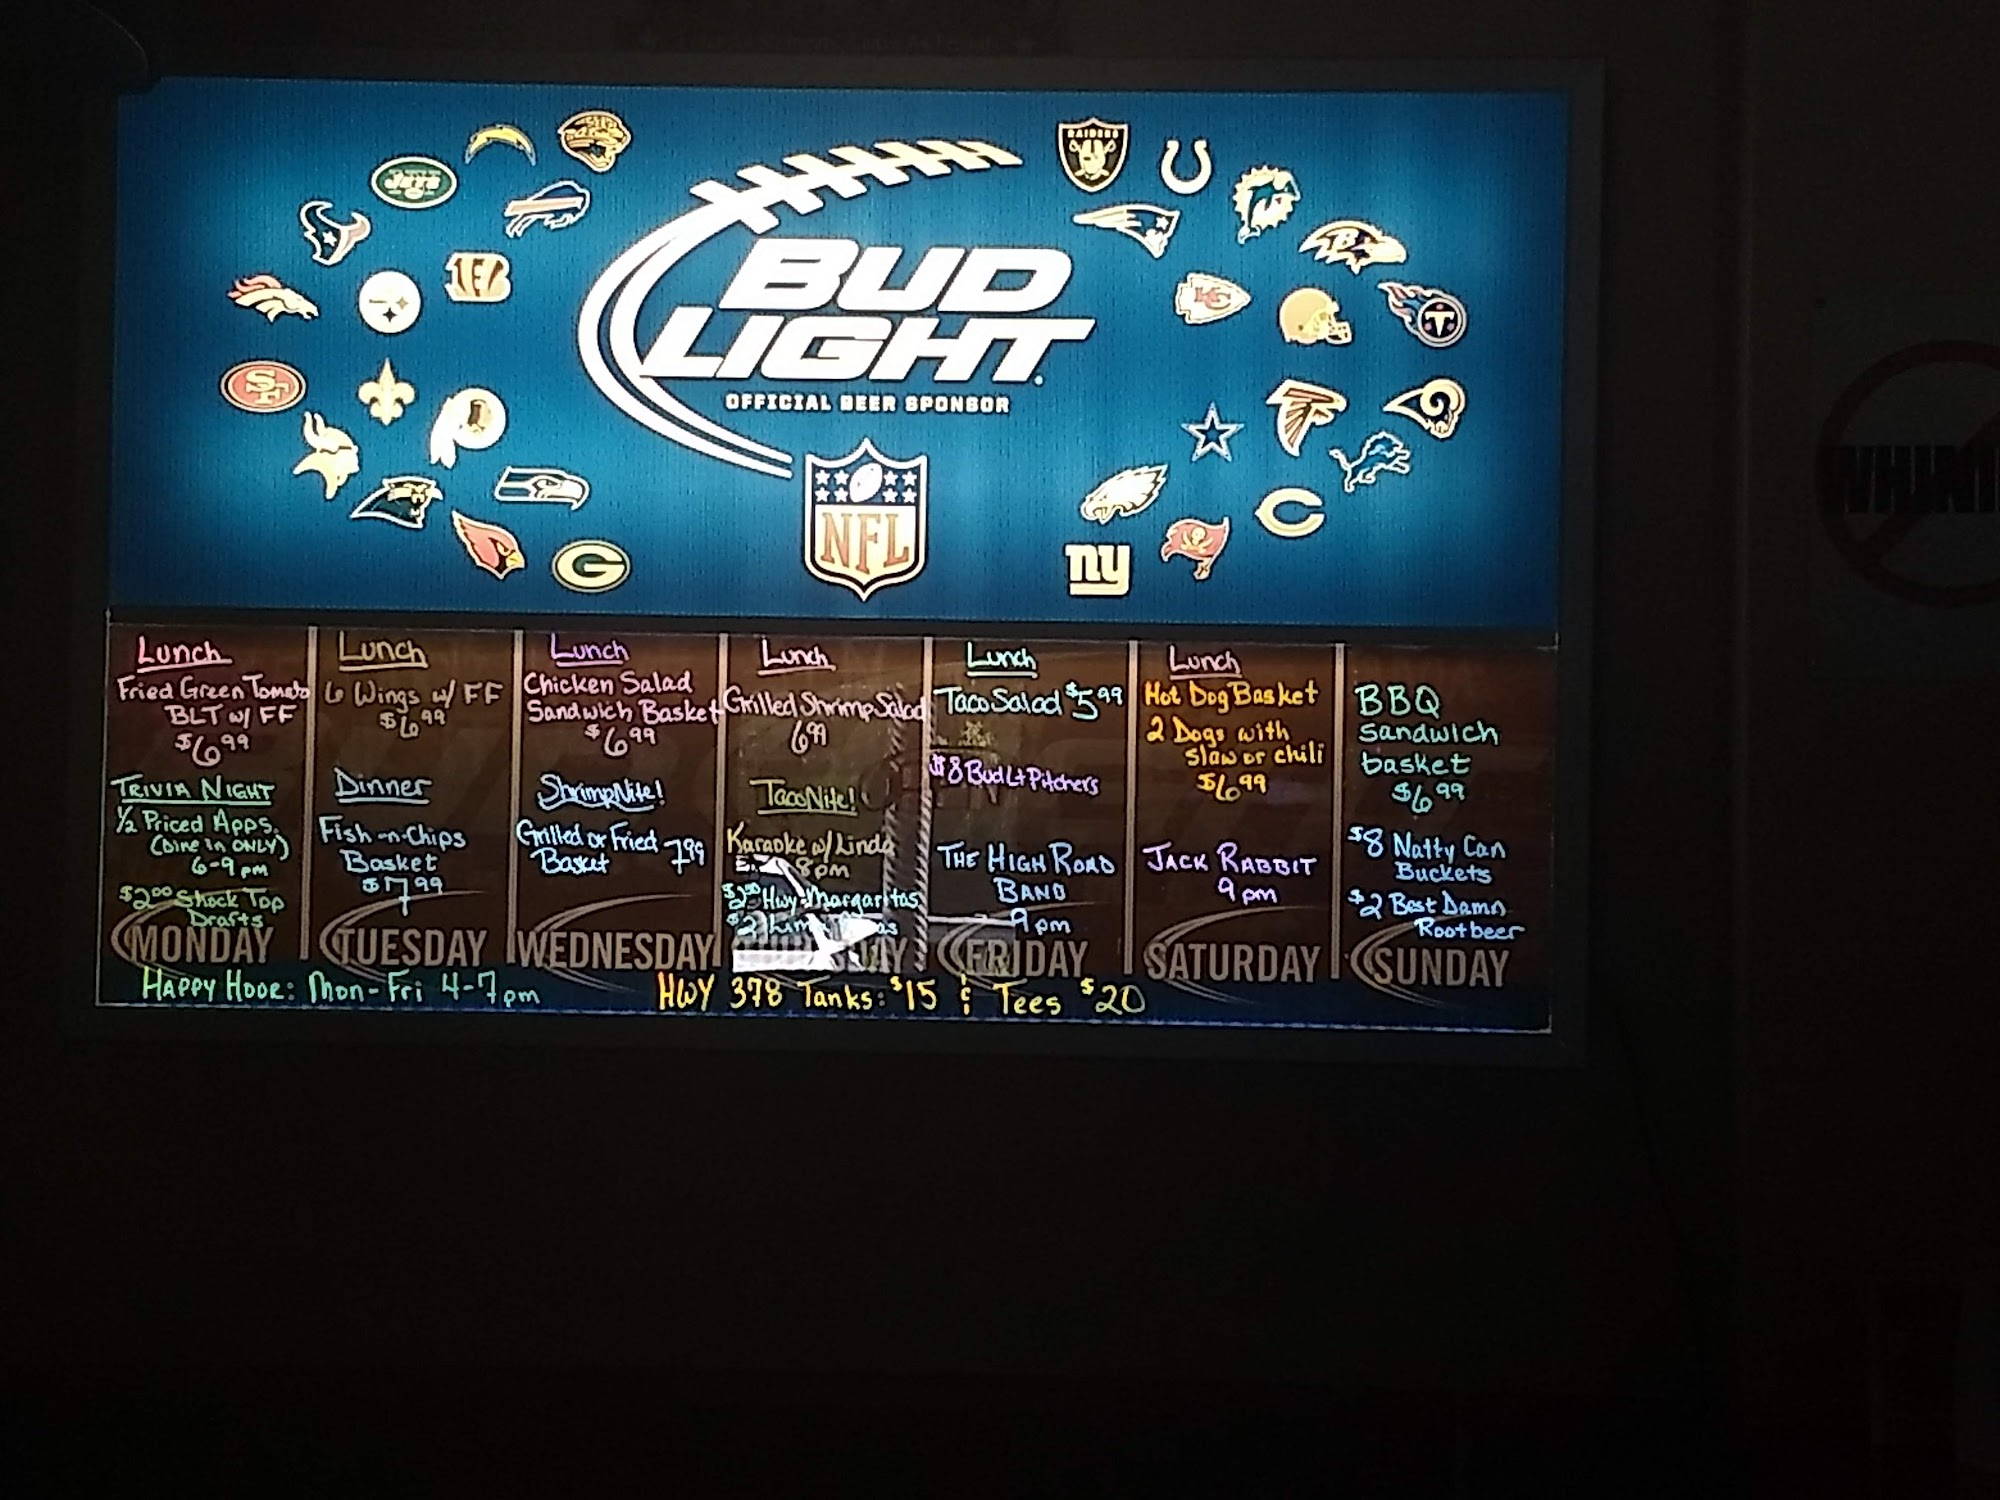 RAIDERS
JETS
BUD
LIGHT
OFFICIAL BEER SPONSOR
NFL
SF
KC
B
T
C
G
ny
Lunch
Fried Green Tomato
BLT w/ FF
$6.99
TRIVIA NIGHT
½ Priced Apps.
(Dine in ONLY)
6-9pm
$2.00 Shock Top
Drafts
MONDAY
Lunch
6 Wings w/ FF
$6.99
Dinner
Fish-n-Chips
Basket
$7.99
TUESDAY
Lunch
Chicken Salad
Sandwich Basket
$6.99
Shrimp Nite!
Grilled or Fried 7.99
Basket
WEDNESDAY
Lunch
Grilled Shrimp Salad
6.99
Taco Nite!
Karaoke w/ Linda
8pm
$2.50 Hwy-Margaritas
Lunch
Taco Salad $5.99
$8 Bud Lt Pitchers
THE HIGH ROAD
BAND
9pm
FRIDAY
Lunch
Hot Dog Basket
2 Dogs with
slaw or chili
$6.99
JACK RABBIT
9pm
SATURDAY
BBQ
sandwich
basket
$6.99
$8 Natty Can
Buckets
$2 Best Damn
Rootbeer
SUNDAY
HAPPY HOUR: Mon-Fri 4-7pm
HWY 378 Tanks: $15 & Tees $20